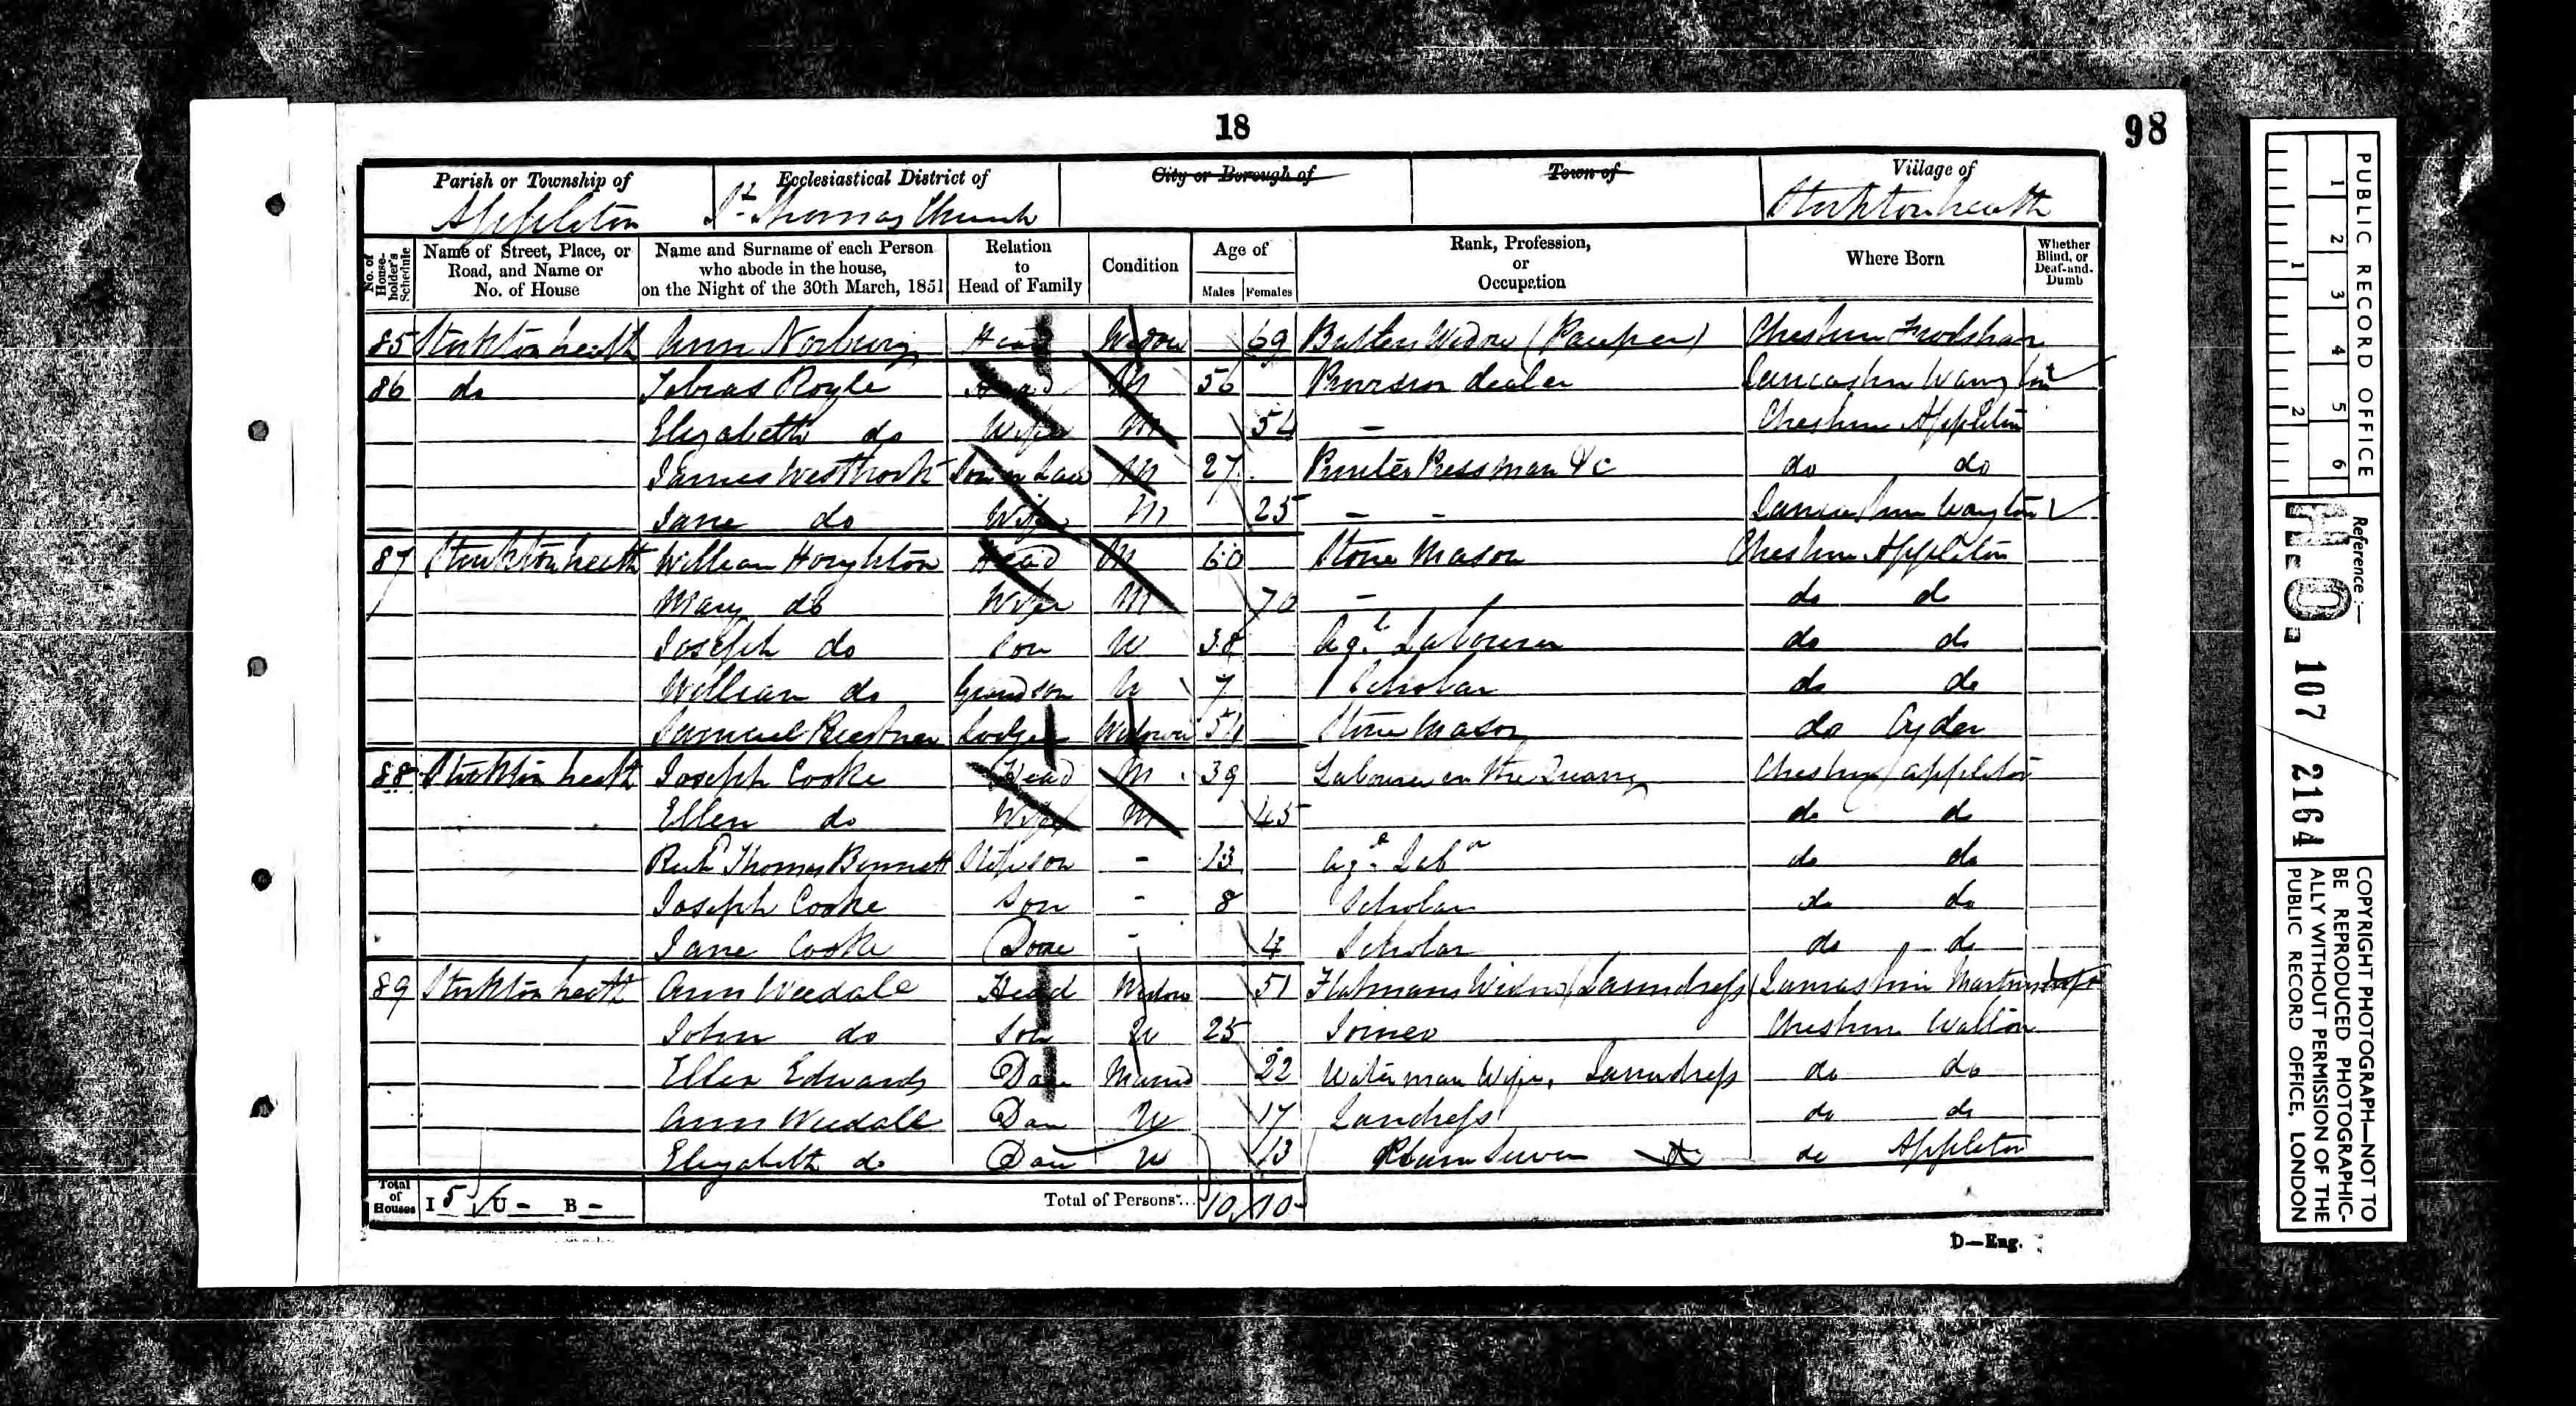 18
98
Parish or Township of Appleton
Ecclesiastical District of St Thomas Church
City or Borough of
Town of
Village of Stocktonheath
No. of House-holder's Schedule
Name of Street, Place, or Road, and Name or No. of House
Name and Surname of each Person who abode in the house, on the Night of the 30th March, 1851
Relation to Head of Family
Condition
Age of
Males Females
Rank, Profession, or Occupation
Where Born
Whether Blind, or Deaf-and-Dumb
85 Stocktonheath Ann Norbury Head Widow 69 Widow (Pauper) Cheshire Frodsham
86 do Tobias Royle Head M 56 Provision dealer Lancashire
Elizabeth do Wife M 54 – Cheshire Appleton
James Westbrook Son in Law M 27 Printer Pressman &c do do
Jane do Wife M 25 – – Lancashire
87 Stocktonheath William Houghton Head M 60 Stone Mason Cheshire Appleton
Mary do Wife M 70 – do do
Joseph do Son U 38 Agl Labourer do do
William do Grandson U 7 Scholar do do
Samuel Lodger Widower 54 Stone Mason do
88 Stockton heath Joseph Cooke Head M 39 Labourer in the Quarry Cheshire Appleton
Ellen do Wife M 45 do do
Thomas Bennett Stepson – 13 Agl Labr do do
Joseph Cooke Son – 8 Scholar do do
Jane Cooke – 4 Scholar do do
89 Stockton heath Ann Weedall Head Widow 51 Flatmans Widow Laundress Lancashire
John do Son U 25 Joiner Cheshire Walton
Ellen Edwards Dau Married 22 Waterman Wife, Laundress do do
Ann Weedall Dau U 17 Landress do do
Elizabeth do Dau U 13 do Appleton
Total of Houses I 5 U – B –
Total of Persons... 10 10
D—Eng.
PUBLIC RECORD OFFICE
1 2 3 4 5 6
1 2
Reference:—
H.O. 107 / 2164
COPYRIGHT PHOTOGRAPH—NOT TO BE REPRODUCED PHOTOGRAPHIC-
ALLY WITHOUT PERMISSION OF THE PUBLIC RECORD OFFICE, LONDON